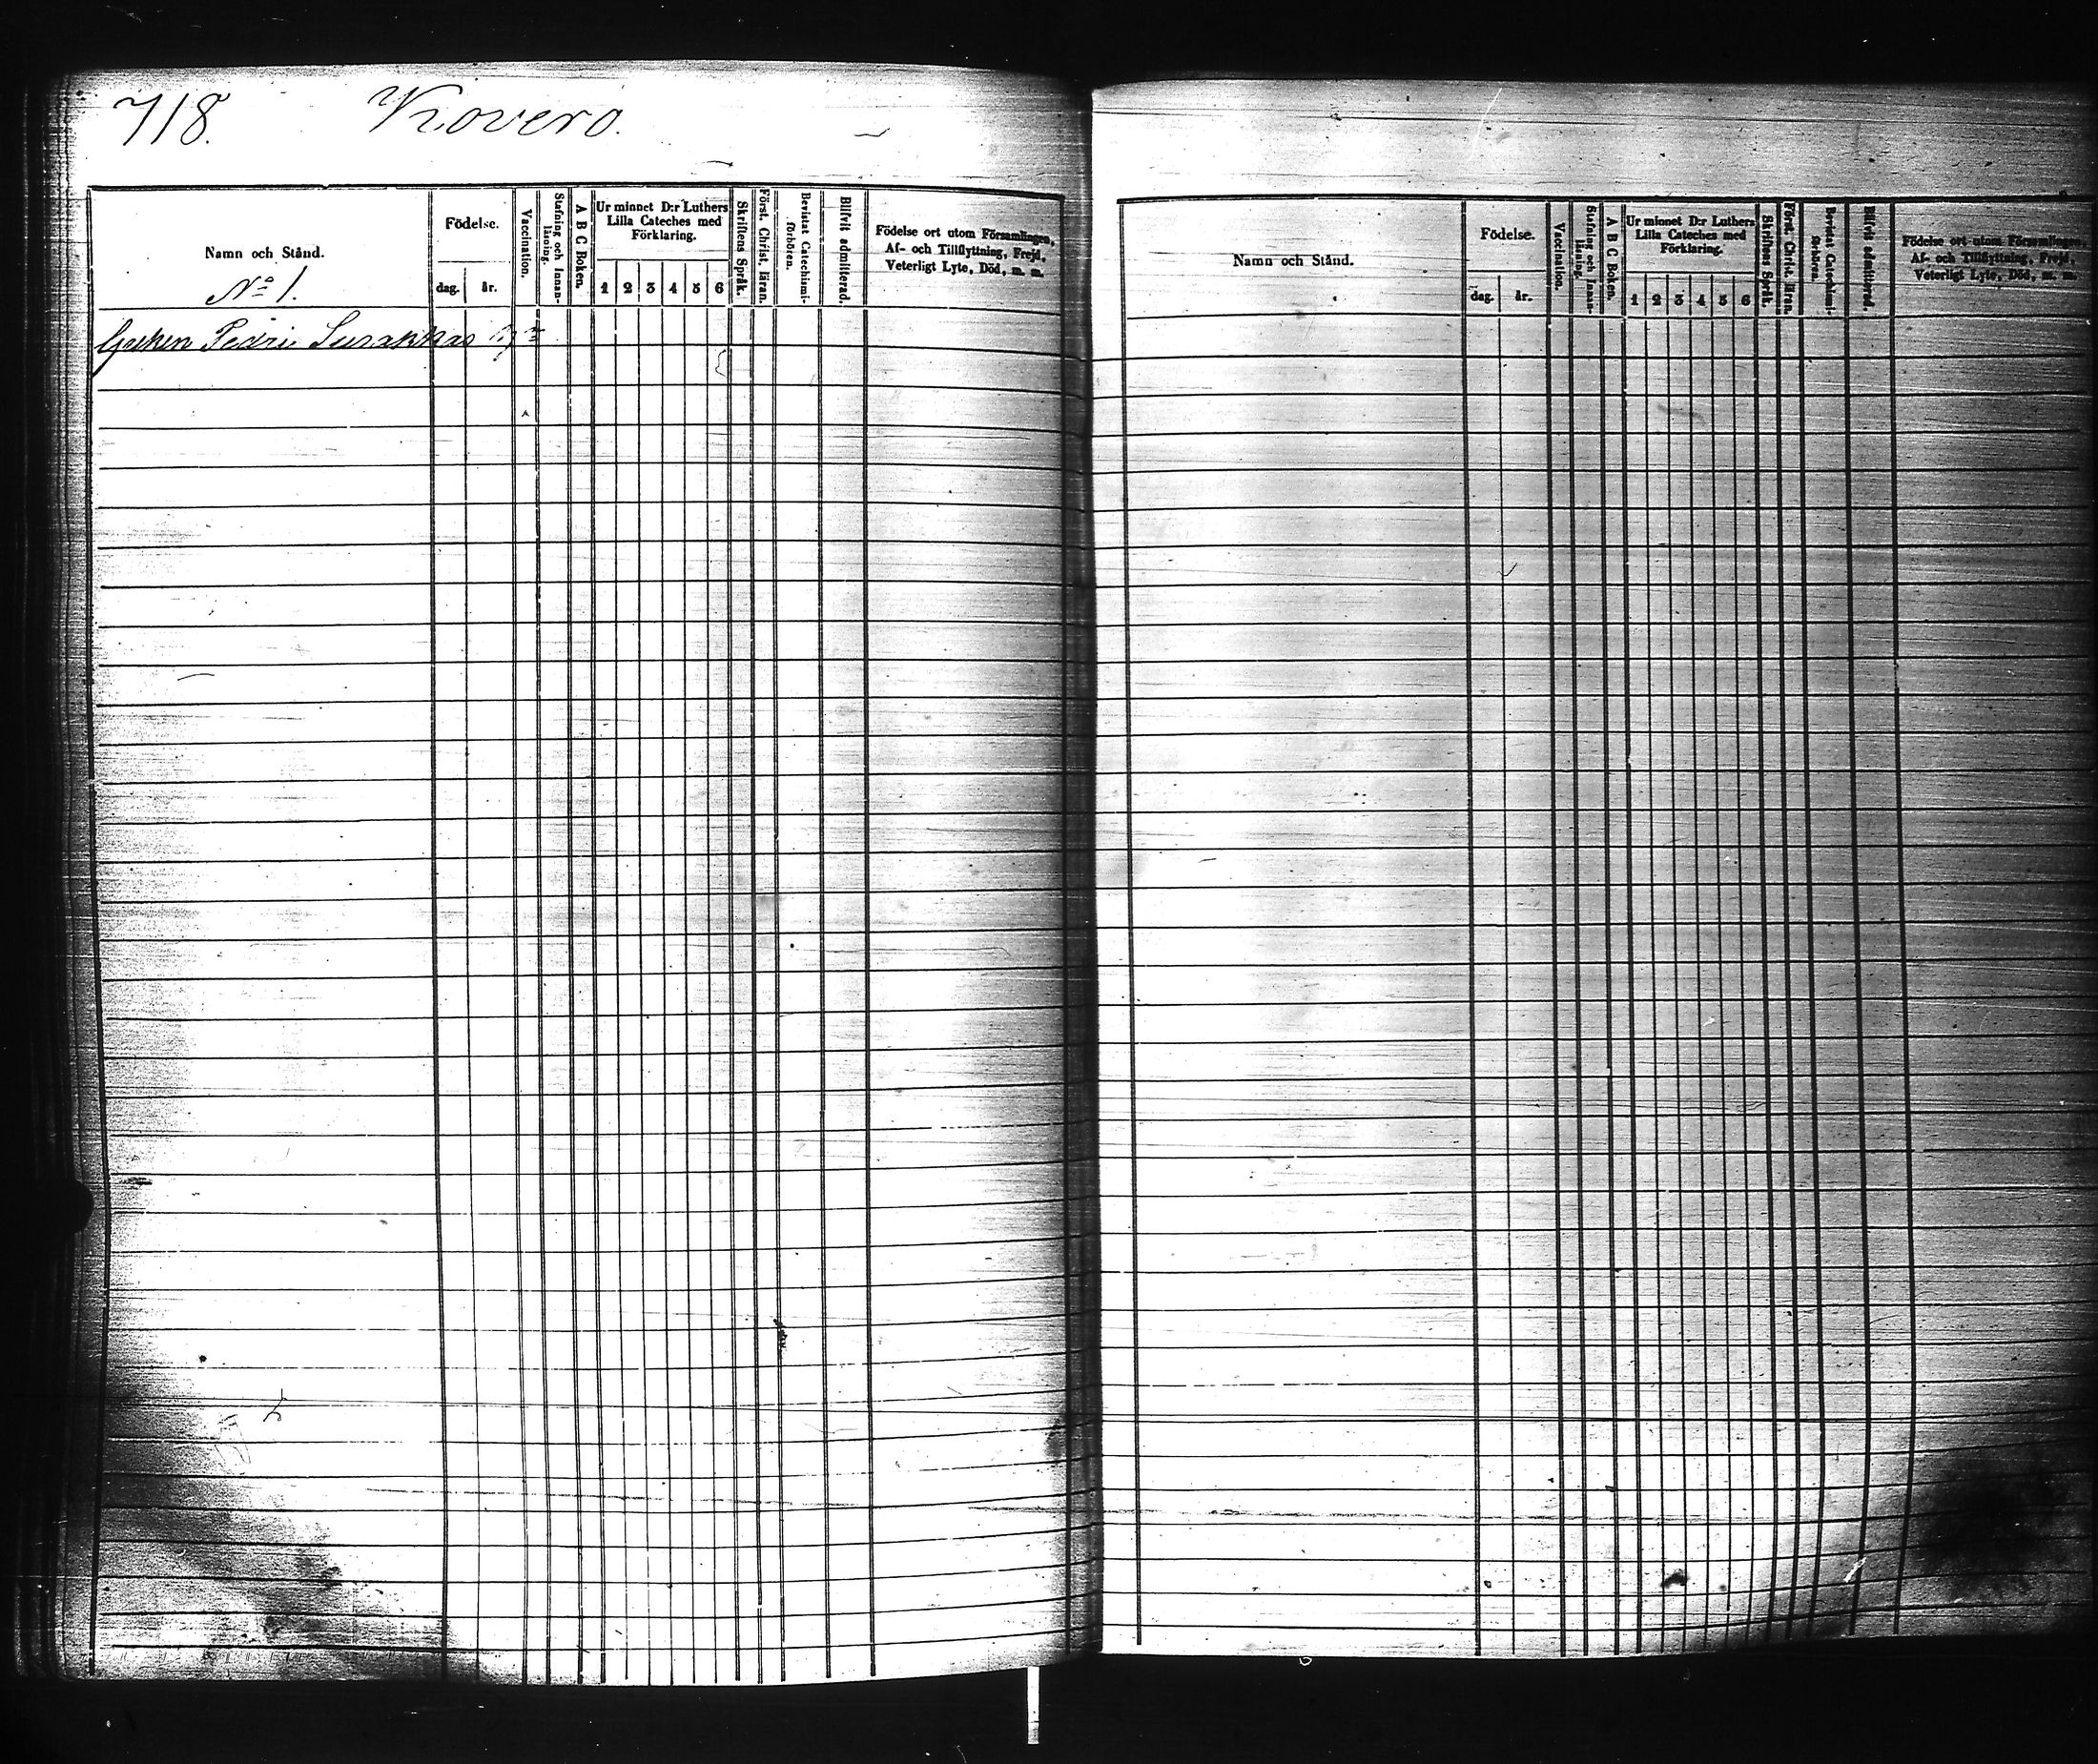 718. Kovero.
Namn och Stånd.
Nº 1.
Födelse.
dag. år.
Vaccination.
Stafning och Innan-
läsning.
A B C Boken.
Ur minnet D:r Luthers
Lilla Cateches med
Förklaring.
1 2 3 4 5 6
Skriftens Språk.
Först. Christ. läran.
Bevistat Catechismi-
förhören.
Blifvit admitterad.
Födelse ort utom Församlingen,
Af- och Tillflyttning, Frejd,
Veterligt Lyte, Död, m. m.
Pedri Surakkas
Namn och Stånd.
Födelse.
dag. år.
Vaccination.
Stafning och Innan-
läsning.
A B C Boken.
Ur minnet D:r Luthers
Lilla Cateches med
Förklaring.
1 2 3 4 5 6
Skriftens Språk.
Först. Christ. läran.
Bevistat Catechismi-
förhören.
Blifvit admitterad.
Födelse ort utom Församlingen,
Af- och Tillflyttning, Frejd,
Veterligt Lyte, Död, m. m.